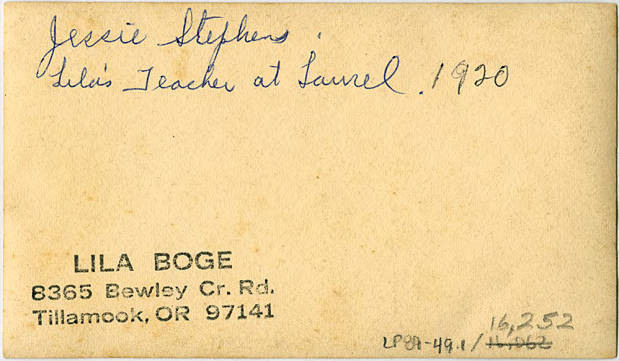 Jessie Stephens.
Lila's Teacher at Laurel. 1920
LILA BOGE
8365 Bewley Cr. Rd.
Tillamook, OR 97141
16,252
LP89-49.1/16,062